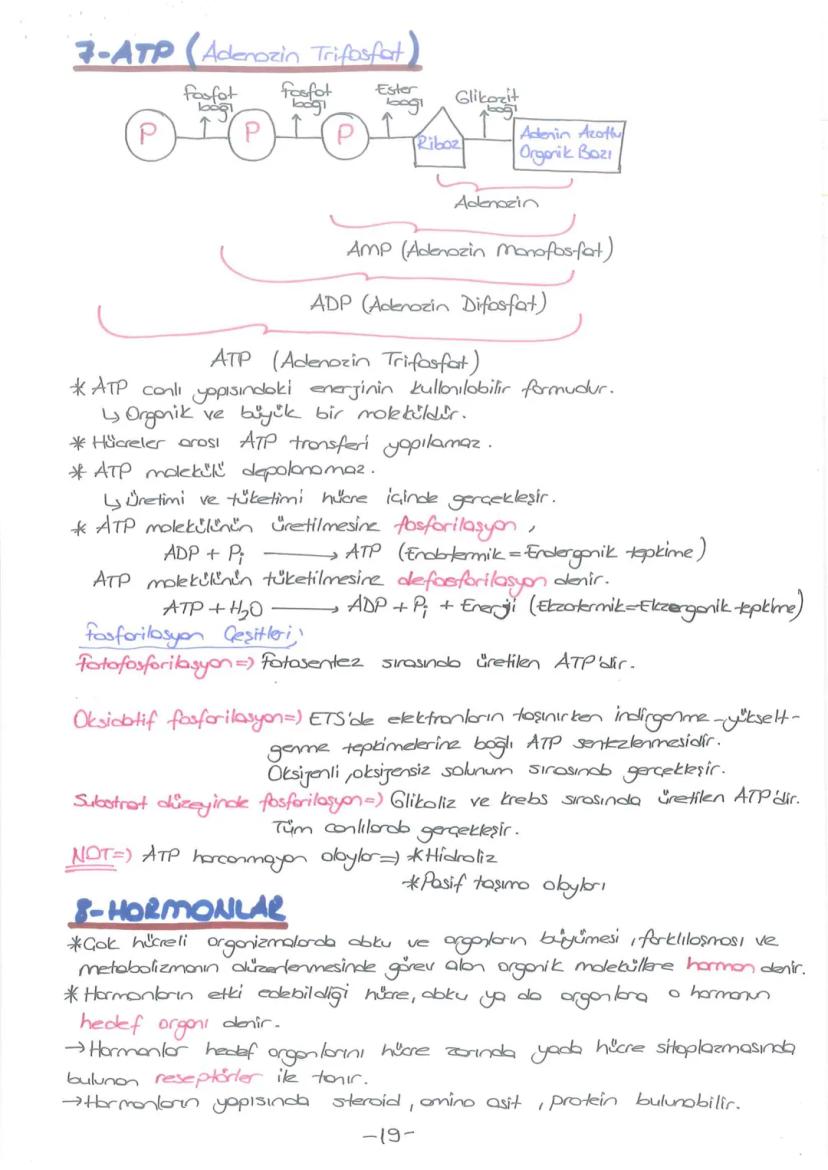 7-ATP (Adenozin Trifosfat)
fosfat bağı
fosfat bağı
Ester bağı
Glikozit bağı
P P P Riboz Adenin Azotlu Organik Bazı
Adenozin
AMP (Adenozin Monofosfat)
ADP (Adenozin Difosfat)
ATP (Adenozin Trifosfat)
* ATP canlı yapısındaki enerjinin kullanılabilir formudur.
↳ Organik ve büyük bir moleküldür.
* Hücreler arası ATP transferi yapılamaz.
* ATP molekülü depolanamaz.
↳ Üretimi ve tüketimi hücre içinde gerçekleşir.
* ATP molekülünün üretilmesine fosforilasyon,
ADP + Pi → ATP (Endotermik = Endergonik tepkime)
ATP molekülünün tüketilmesine defosforilasyon denir.
ATP + H₂O → ADP + Pi + Enerji (Ekzotermik=Ekzergonik tepkime)
Fosforilasyon Çeşitleri;
Fotofosforilasyon=) Fotosentez sırasında üretilen ATP'dir.
Oksidatif fosforilasyon=) ETS'de elektronların taşınırken indirgenme-yükselt-
genme tepkimelerine bağlı ATP sentezlenmesidir.
Oksijenli, oksijensiz solunum sırasında gerçekleşir.
Substrat düzeyinde fosforilasyon=) Glikoliz ve krebs sırasında üretilen ATP'dir.
Tüm canlılarda gerçekleşir.
NOT=) ATP harcanmayan olaylar=) *Hidroliz
*Pasif taşıma olayları
8-HORMONLAR
*Çok hücreli organizmalarda doku ve organların büyümesi, farklılaşması ve
metabolizmanın düzenlenmesinde görev alan organik moleküllere hormon denir.
* Hormonların etki edebildiği hücre, doku ya da organlara o hormonun
hedef organı denir.
→Hormonlar hedef organlarını hücre zarında yada hücre sitoplazmasında
bulunan reseptörler ile tanır.
→Hormonların yapısında steroid, amino asit, protein bulunabilir.
-19-